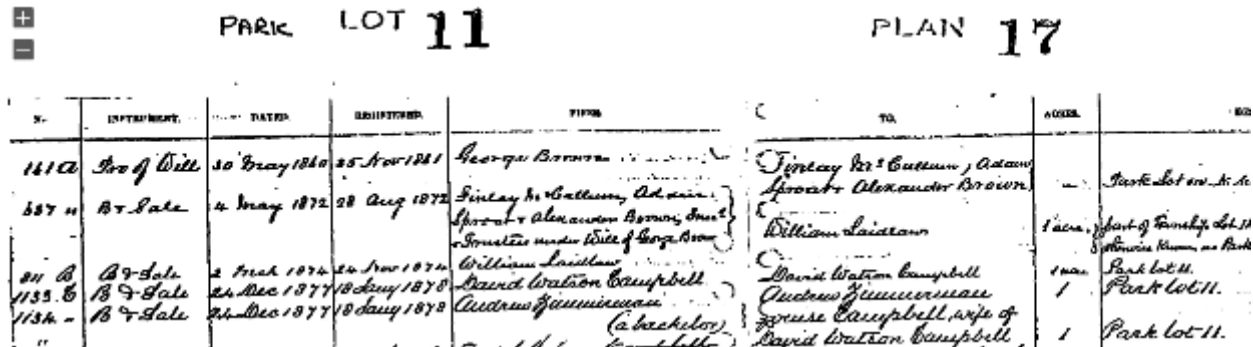 PARK LOT 11 PLAN 17
INSTRUMENT. DATED. REGISTERED. FROM TO. ACRES.
141 A Pro of Will 30 May 1860 25 Nov 1861 George Brown Finlay McCallum, Adam
Sproat & Alexander Brown
B & Sale 4 May 1872 28 Aug 1872 Finlay McCallum, Adam
Sproat & Alexander Brown,
Trustees under Will of George Brown William Laidlaw 1 acre part of Township Lot
known as Park
811 B B & Sale 2 1874 24 Nov 1874 William Laidlaw David Watson Campbell Park lot 11.
1133 B & Sale 24 Dec 1877 18 Jany 1878 David Watson Campbell Andrew Zimmerman 1 Park lot 11.
1134 " B & Sale 24 Dec 1877 18 Jany 1878 Andrew Zimmerman Louise Campbell, wife of
(a bachelor) David Watson Campbell 1 Park lot 11.